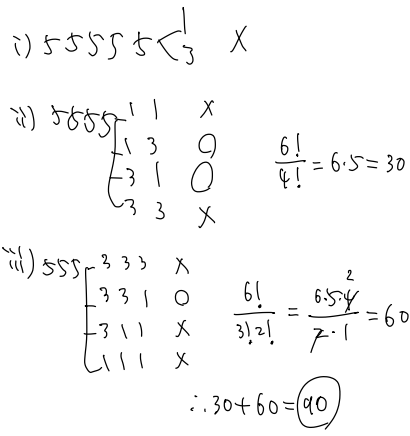 i) 5 5 5 5 5 < 1 3 X
ii) 5555 1 1 X
1 3 O
3 1 O
3 3 X
6!/4! = 6·5 = 30
iii) 555 3 3 3 X
3 3 1 O
3 1 1 X
1 1 1 X
6!/3!2! = 6·5·4/2·1 = 60
2
∴ 30+60=90